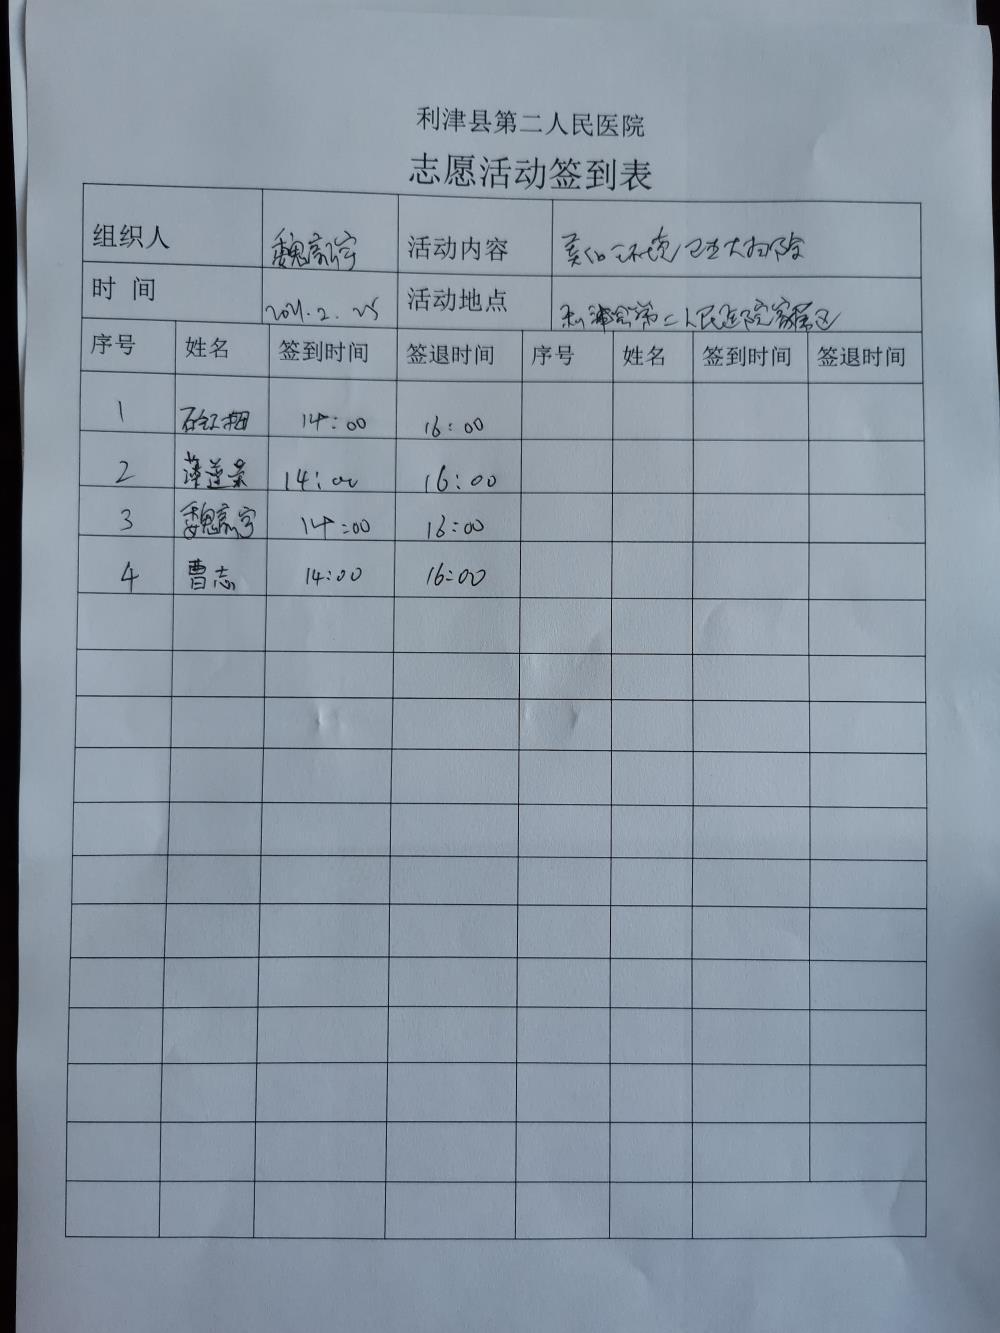 利津县第二人民医院
志愿活动签到表
组织人 活动内容 美化环境卫生大扫除
时 间 2021.2.25 活动地点 利津县第二人民医院家属区
序号 姓名 签到时间 签退时间 序号 姓名 签到时间 签退时间
1 14:00 16:00
2 14:00 16:00
3 14:00 16:00
4 曹志 14:00 16:00